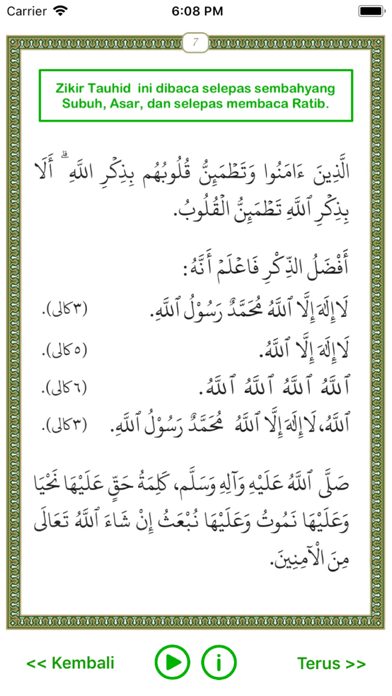 Carrier 6:08 PM
7
Zikir Tauhid ini dibaca selepas sembahyang
Subuh, Asar, dan selepas membaca Ratib.
الَّذِينَ ءَامَنُوا وَتَطْمَئِنُّ قُلُوبُهُم بِذِكْرِ اللَّهِ ۗ أَلَا
بِذِكْرِ ٱللَّهِ تَطْمَئِنُّ الْقُلُوبُ.
أَفْضَلُ الذِّكْرِ فَاعْلَمْ أَنَّهُ:
لَاإِلَهَ إِلَّا ٱللَّهُ مُحَمَّدٌ رَسُوْلُ ٱللَّهِ. (٣كالى).
لَاإِلَهَ إِلَّا ٱللَّهُ. (٥كالى).
ٱللَّهُ ٱللَّهُ ٱللَّهُ ٱللَّهُ. (٦كالى).
ٱللَّهُ، لَاإِلَهَ إِلَّا ٱللَّهُ مُحَمَّدٌ رَسُوْلُ ٱللَّهِ. (٣كالى).
صَلَّى ٱللَّهُ عَلَيْهِ وَآلِهِ وَسَلَّم، كَلِمَةُ حَقٍّ عَلَيْهَا نَحْيَا
وَعَلَيْهَا نَمُوتُ وَعَلَيْهَا نُبْعَثُ إِنْ شَاءَ ٱللَّهُ تَعَالَى
مِنَ الْآمِنِينَ.
<< Kembali i Terus >>